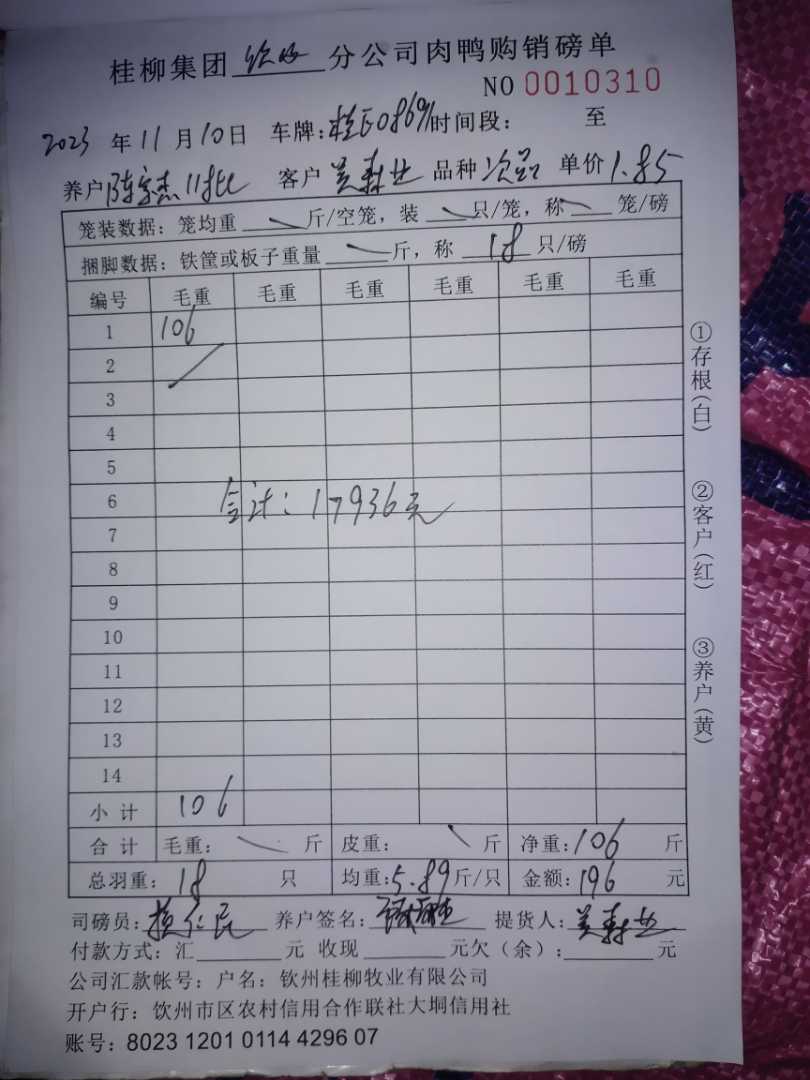 桂柳集团 钦州 分公司肉鸭购销磅单
NO 0010310
2023 年 11 月 10 日 车牌: 桂 时间段: 至
养户 陈 杰11批 客户 品种 次品 单价 1.85
笼装数据: 笼均重 斤/空笼, 装 只/笼, 称 笼/磅
捆脚数据: 铁筐或板子重量 斤, 称 18 只/磅
编号 毛重 毛重 毛重 毛重 毛重 毛重
1 106
2
3
4
5
6
合计: 17936元
7
8
9
10
11
12
13
14
小计 106
合计 毛重: 斤 皮重: 斤 净重: 106 斤
总羽重: 18 只 均重: 5.89 斤/只 金额: 196 元
司磅员: 养户签名: 提货人:
付款方式: 汇 元 收现 元欠(余): 元
公司汇款帐号: 户名: 钦州桂柳牧业有限公司
开户行: 钦州市区农村信用合作联社大垌信用社
账号: 8023 1201 0114 4296 07
①存根(白)
②客户(红)
③养户(黄)